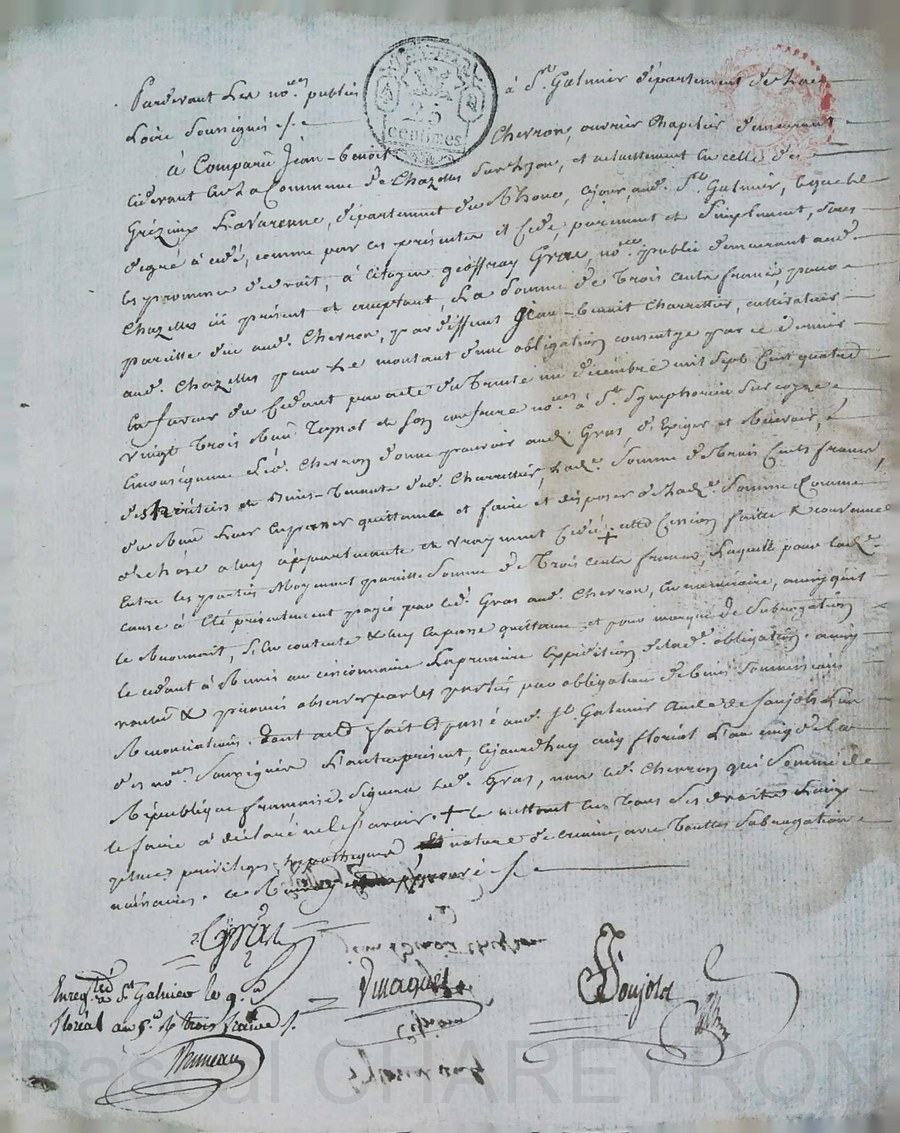 Pardevant Les no.res publics à St Galmier département de la
Loire Soussignés ./.
25
centimes
à Comparu Jean-Benoit Chevron, ouvrier Chapelier demeurant
cidevant en La Commune de Chazelles Sur Lyon, et actuellement en celle de
Grézieux Lavarenne, département du Rhône, à jour, aud. St. Galmier, lequel
degré à cédé, comme par ces présentes il Cède, purement et Simplement, sous
les promesses de droit, à Citoyen geoffray Gras, no.re public demeurant aud.
Chazelles ici présent et acceptant, La Somme de Trois cents francs, pour
pareille due aud. Chevron, par deffunt Jean-Benoit Charretier, cultivateur
aud. Chazelles pour Le montant d'une obligation consentye par ce dernier
En faveur du Cédant par acte du Trente un décembre mil Sept Cent quatre
vingt Trois Reçu et Son confrere no.res à St. Symphorien Sur coize
Enconséquence Led. Chevron donne pouvoir aud. Gras, d'Exiger et Recevoir,
des héritiers et Biens-Tenants dud. Charretier, lad. Somme de Trois Cents francs,
du Reçu Leur En passer quittance et faire et disposer de lad. Somme Comme
de chose a luy appartenante et vrayment Cédé + cette Cession faitte & convenue
Entre les parties Moyennant pareille Somme de Trois Cents francs, Laquelle pour lad.
cause à Été présentement payée par led. Gras aud. Chevron, En numéraire, ainsy quil
le Reconnait, S'En contente & luy Enpasse quittance, et pour marque de Subrogation
le cédant à Remis au cessionnaire La premiere Expédition de lad. obligation. ainsy
voulu & promis observer par les parties par obligation de biens Soumissions
Renonciations. Dont acte fait & passé aud. St. Galmier Etude de Soujols L'un
des no.res Soussignés L'autre présent, Cejourdhuy cinq floréal L'an cinq de la
République française. Signera Led. Gras, non led. Chevron qui Sommé de
le faire à déclaré ne le Savoir. + le mettant En Tous Ses droits, Noms
privileges, hypotheques, nature de creance, avec Touttes Subrogations
nécessaires. ce Renvoy approuvé ./.
Gras
Soujols
Enreg.tré à St Galmier le 9.
floréal an 5.e R trois francs /.
Bruneau
Pascal CHAREYRON